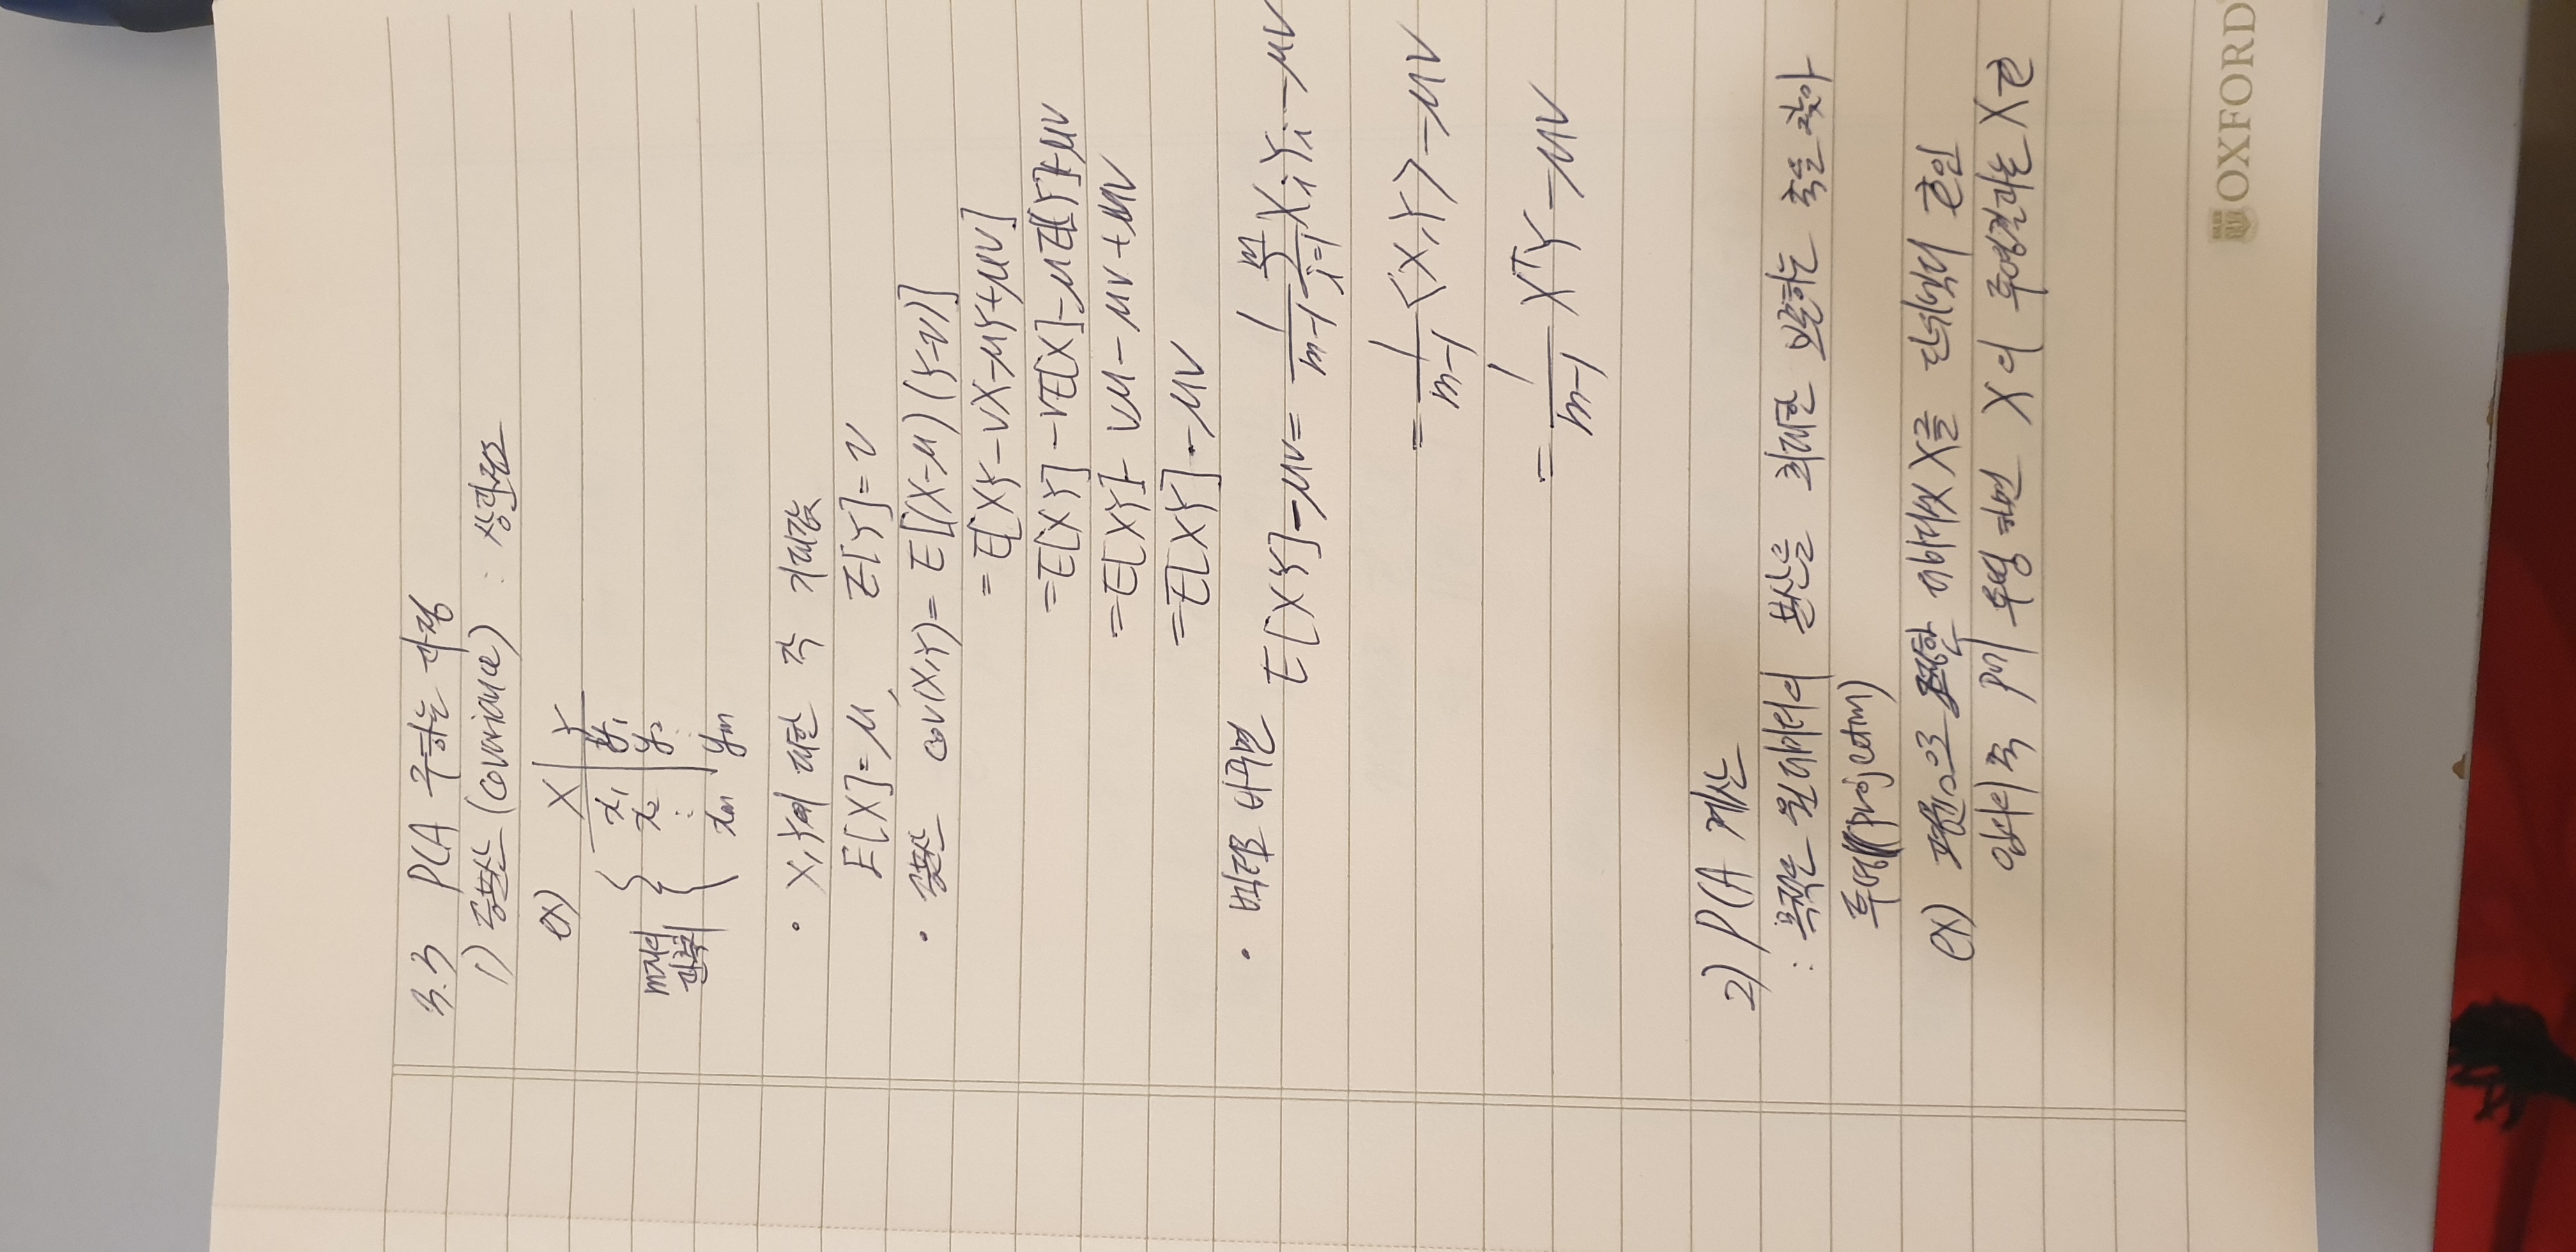 3.3 PCA 구하는 과정
1) 공분산 (covariance) : 상관정도
ex) X | Y
x₁ | y₁
m개의 x₂ | y₂
관측치 : | :
xₘ | yₘ
• X, Y에 대한 각 기대값
E[X] = μ, E[Y] = ν
• 공분산 cov(X,Y) = E[(X-μ)(Y-ν)]
= E[XY-νX-μY+μν]
= E[XY] - νE[X] - μE[Y] + μν
= E[XY] - νμ - μν + μν
= E[XY] - μν
• 벡터로 바꾸면
E[XY] - μν = 1/(m-1) Σ_{i=1}^{m} XᵢYᵢ - μν
= 1/(m-1) <X,Y> - μν
= 1/(m-1) XᵀY - μν
2) PCA 계산
: 목적은 원 데이터의 분산을 최대한 보존하는 축을 찾아
투영(projection)
ex) 평균 0으로 조정한 데이터셋 X를 단위벡터 e⃗인
임의의 축 P에 투영하면 X의 투영결과는 Xe⃗
OXFORD